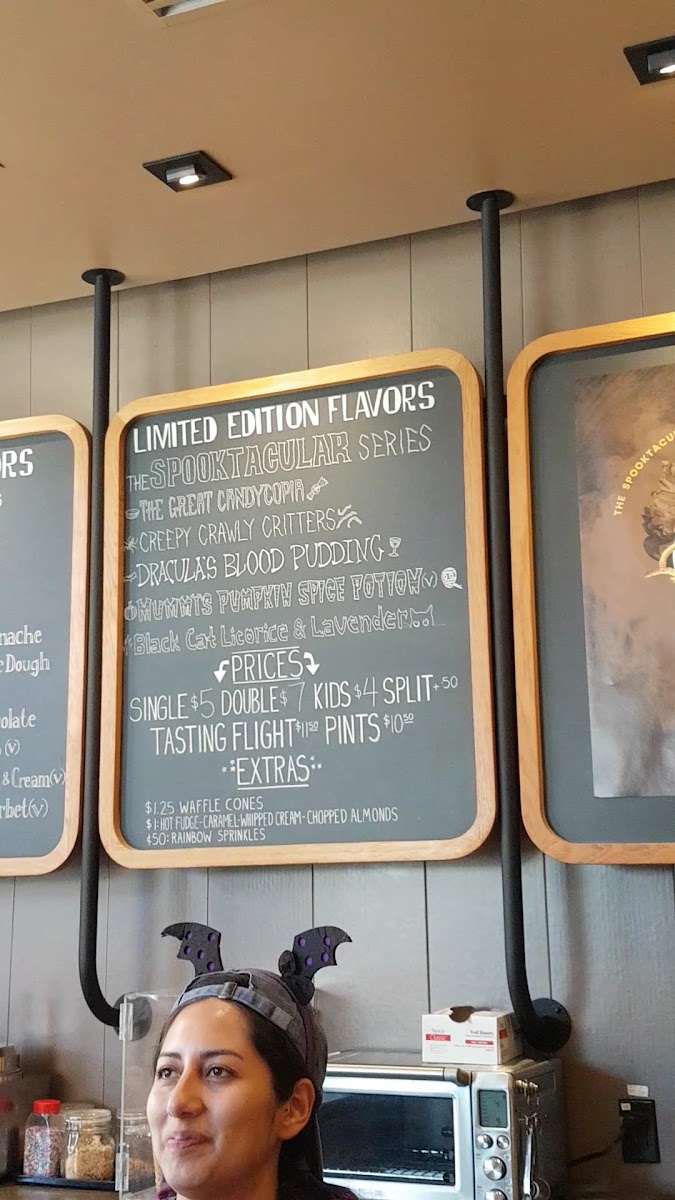 RS
nache
e Dough
olate
(v)
& Cream(v)
rbet(v)
LIMITED EDITION FLAVORS
THE SPOOKTACULAR SERIES
THE GREAT CANDYCOPIA
CREEPY CRAWLY CRITTERS
DRACULA'S BLOOD PUDDING
MUMMY'S PUMPKIN SPICE POTION(V)
Black Cat Licorice & Lavender
PRICES
SINGLE $5 DOUBLE $7 KIDS $4 SPLIT +.50
TASTING FLIGHT $11.50 PINTS $10.50
EXTRAS
$1.25 WAFFLE CONES
$1: HOT FUDGE-CARAMEL-WHIPPED CREAM-CHOPPED ALMONDS
¢50: RAINBOW SPRINKLES
THE SPOOKTACU
Foil Sheets